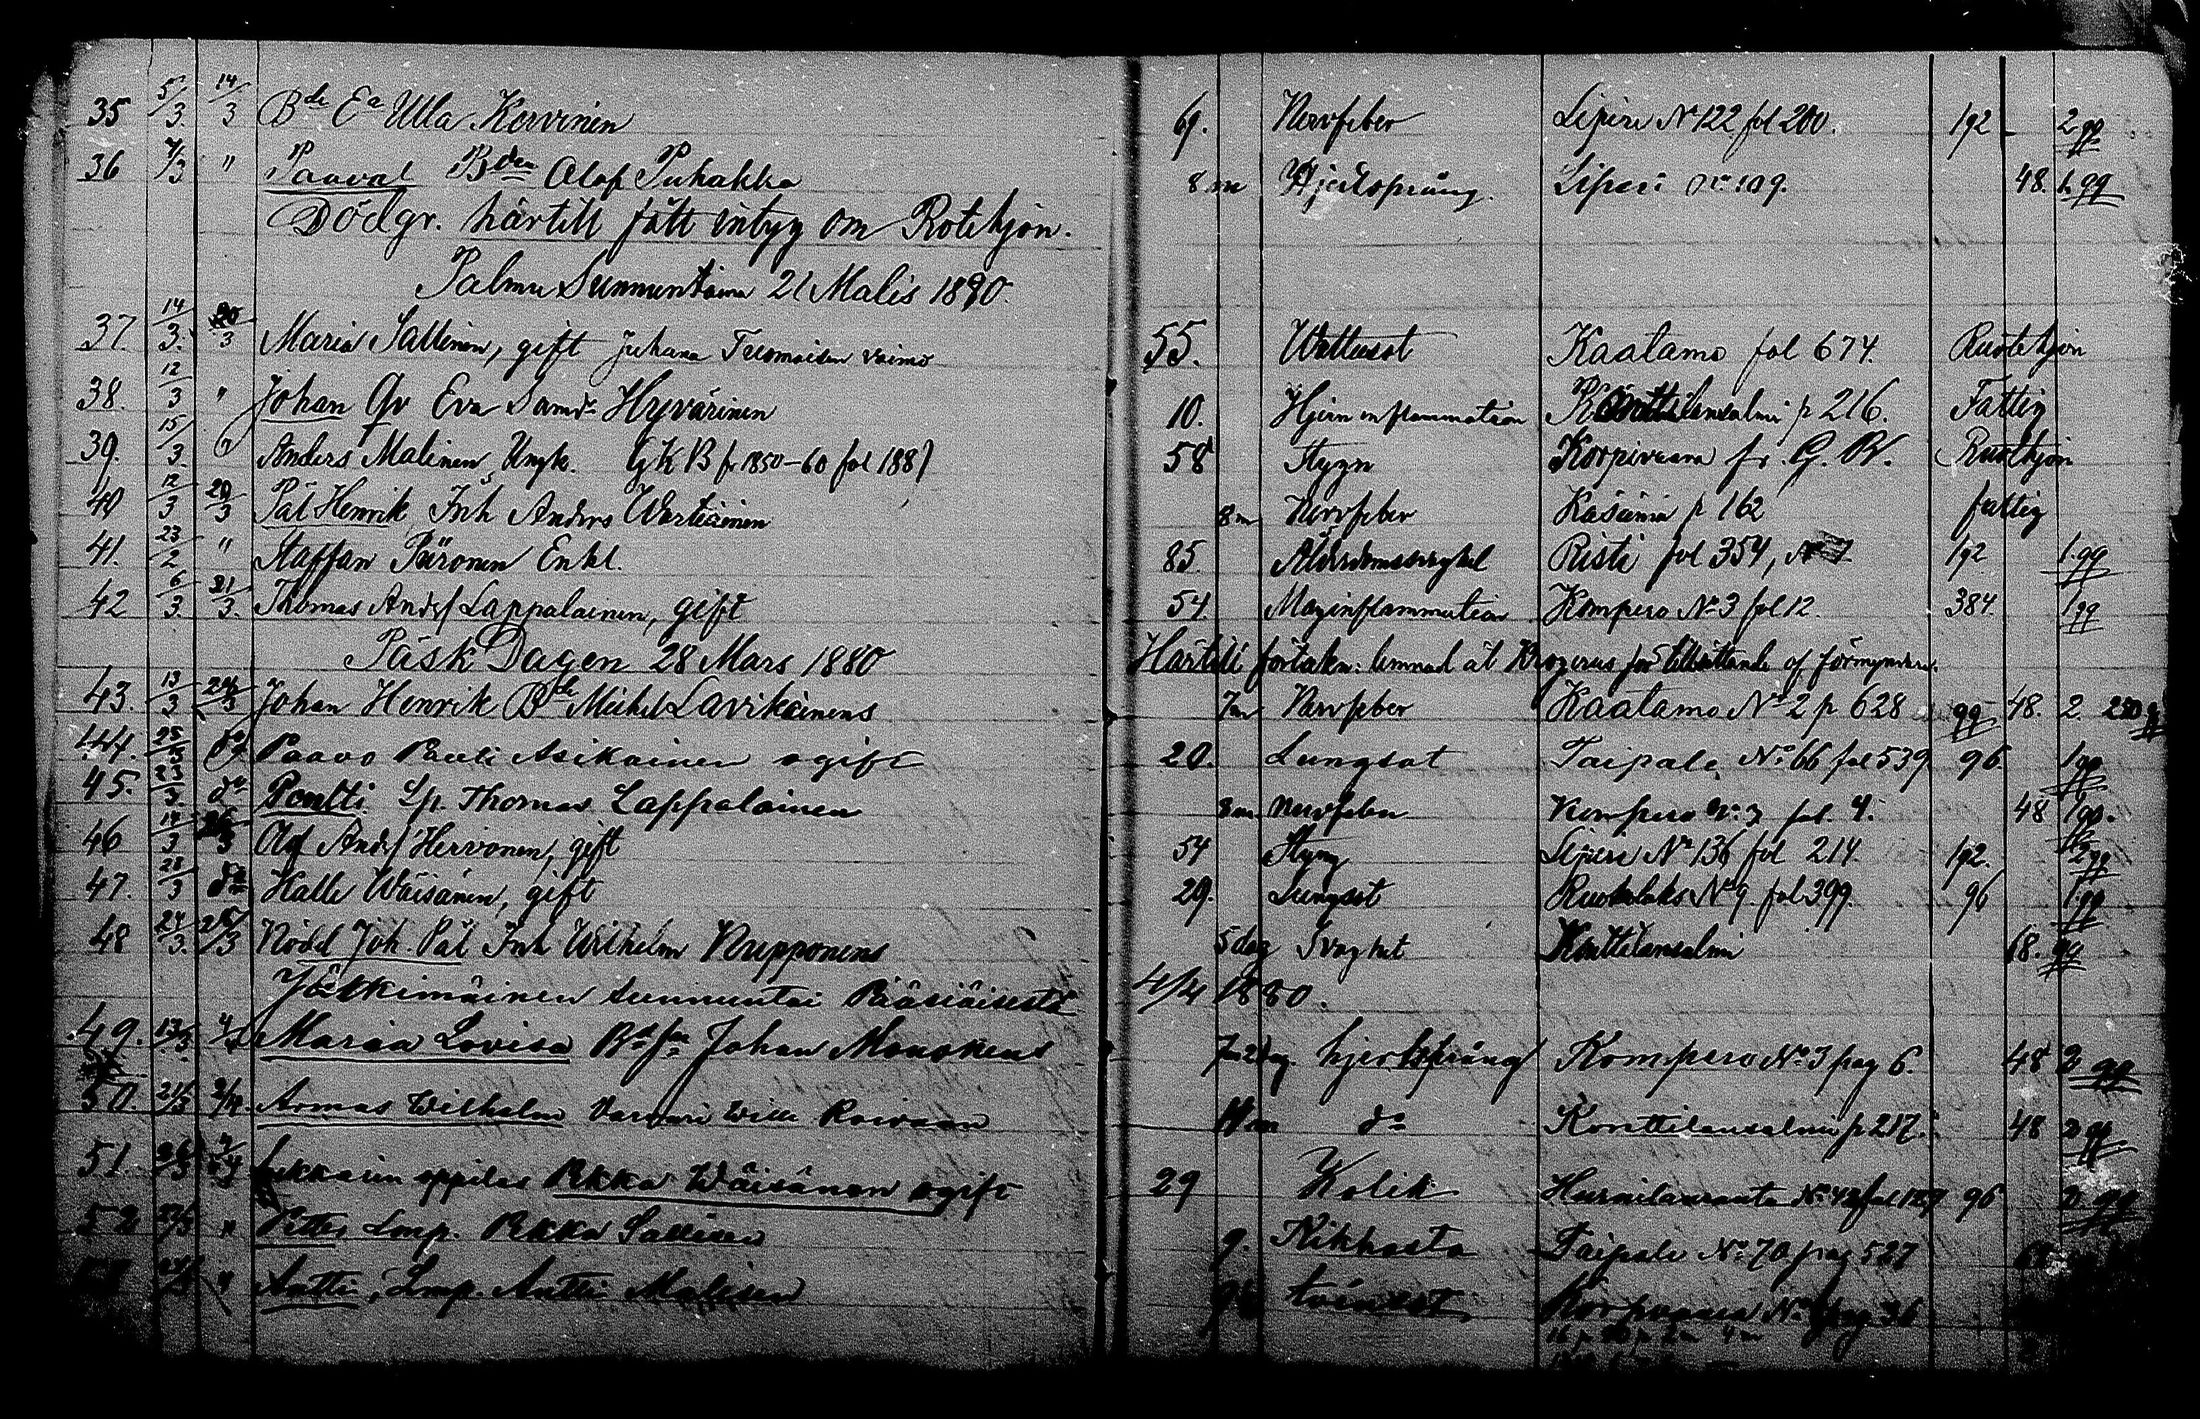 35 5/3. 14/3 Bde Ea Ulla Korvinen 61. Nervfeber Liperi No 122 fol 200. 192 2 qq
36 7/3 " Paaval Bden Olof Puhakka 8 m Hjertsprång. Liperi No 109. 48. 1 qq
Dödgr. härtill fått intyg om Rotehjon.
Palmu Sunnuntaina 21 Malis 1890.
37. 14/3. 20/3 Maria Sallinen, gift Juhana Tuomaisen vaimo 55. Wattusot Kaatamo fol 674. Rustehjon
38. 12/3 " Johan Gv Eva Samdr Hyvärinen 10. Hjerninflammation Konttilansalmi p 216. Fattig
39. 15/3. Anders Malinen, Ungk. GKB fr 1850-60 fol 188 58 Stygn Korpivaara fr. G. B. Rustehjon
40 12/3 20/3 Pål Henrik Inh Anders Wartiainen 8 m Nervfeber Käsämä p 162 fattig
41. 23/2 " Staffan Püronen Enkl. 85. Ålderdomssvaghet Risti fol 354, 192 1 qq
42 6/3. 21/3. Thomas Andsf Lappalainen, gift 54. Maginflammation Kompero No 3 fol 12. 384. 1 qq
Påsk Dagen 28 Mars 1880 Härtill förteckn: lemnad åt Krogerus för tillsättande af förmyndare.
43. 13/3 Johan Henrik Bde Michel Lavikainens 7 m Nervfeber Kaatamo No 2 p 628 qq 48. 2.
44. 25/3 do Paavo Pauli Asikainen ogift 20. Lungsot Taipale No 66 fol 539 96 1 qq
45. 23/3. do Pentti Lp. Thomas Lappalainen 8 m Nervfeber Kompero No 3 fol 4. 48 1 qq.
46 14/3 Olof Andsf Hirvonen, gift 54 Styng Liperi No 136 fol 214. 192. 2 qq
47. 28/3 do Kalle Wäisänen, gift 29. Lungsot Ruokolaks No 9. fol 399. 96 1 qq
48 24/3. 25/3 Nödd Joh. Pål Inh Wilhelm Knupponens 5 dag Svaghet Konttilansalmi 68. qq
Jälkimäinen sunnuntai Pääsiäisestä 4/4 1880.
49. 13/3 4/4 Maria Lovisa Bdfn Johan Monokens 7 m 2 dag. hjertsprång Kompero No 3 pag 6. 48 2 qq
50. 21/3 2/4. Armas Wilhelm Varvari Wille Roivaan 11 m do Konttilansalmi p 217. 48 2 qq
51. 26/3 Lukkarin oppilas Pekka Wäisänen ogift 29 Kolik 96 2 qq
52 " Petter Lmp. Pekka Sallisen 9. Rikkosta Taipale No 70 pag 527
" Antti, Lmp. Antti Malisen Korpivaara No pag 36